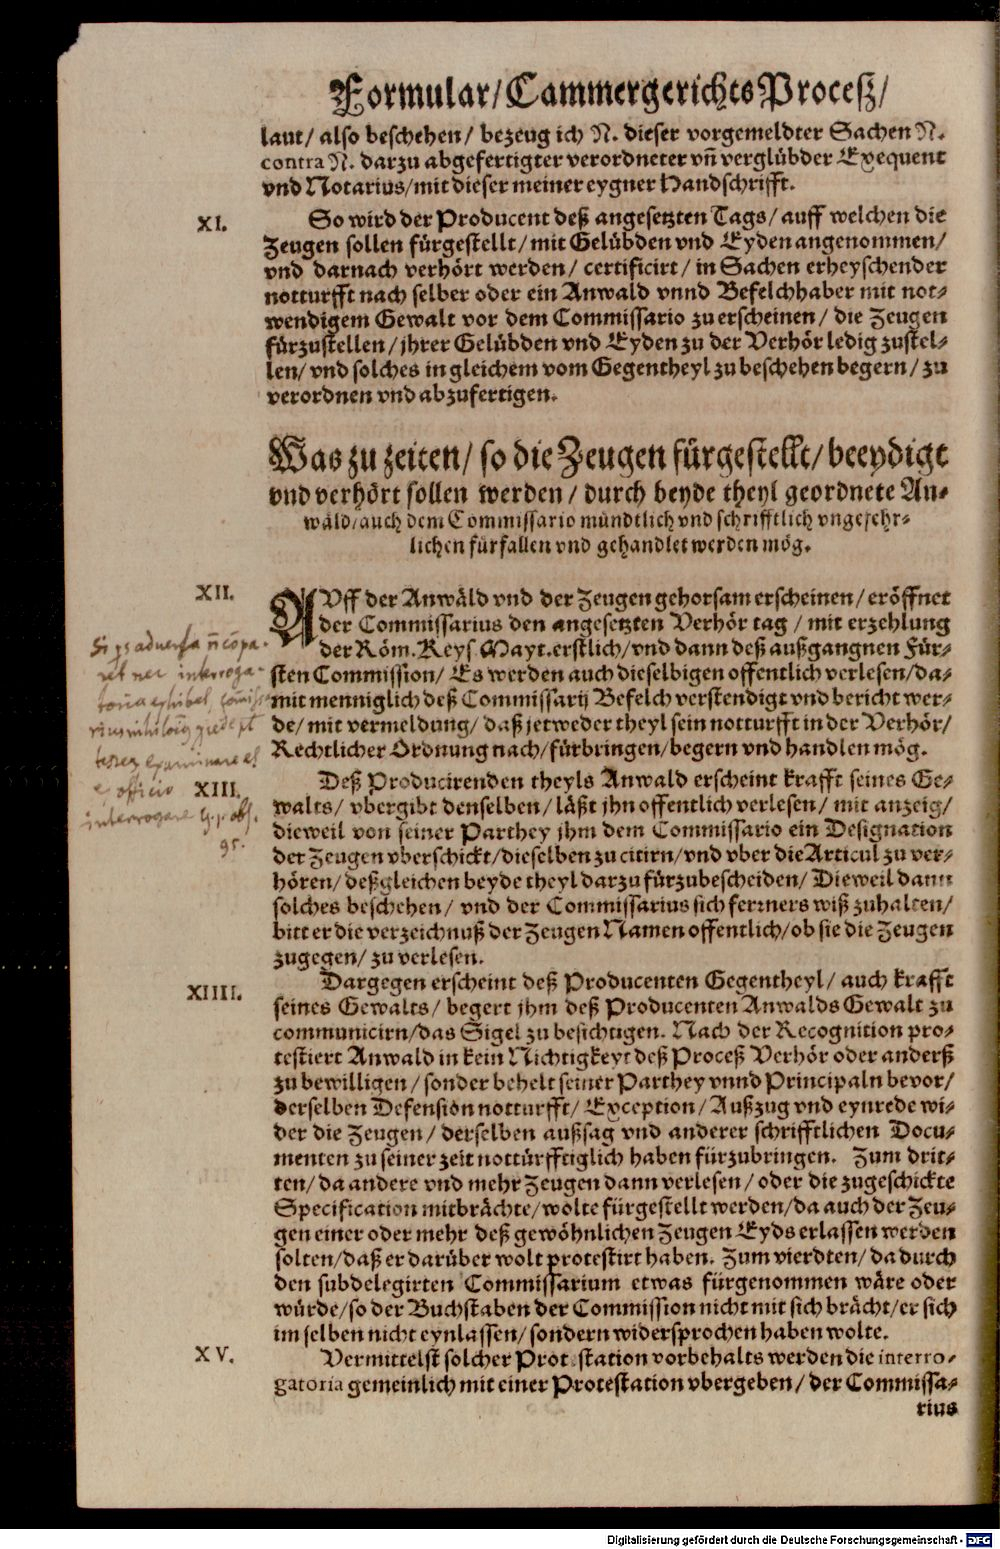 Formular/ Cammergerichts Proceß/
laut/ also beschehen/ bezeug ich N. dieser vorgemeldter Sachen N.
contra N. darzu abgefertigter verordneter vn̄ verglübder Exequent
vnd Notarius/ mit dieser meiner eygner Handschrifft.
XI.
So wird der Producent deß angesetzten Tags/ auff welchen die
Zeugen sollen fürgestellt/ mit Gelübden vnd Eyden angenommen/
vnd darnach verhört werden/ certificirt/ in Sachen erheyschender
notturfft nach selber oder ein Anwald vnnd Befelchhaber mit not-
wendigem Gewalt vor dem Commissario zu erscheinen/ die Zeugen
fürzustellen/ jhrer Gelübden vnd Eyden zu der Verhör ledig zustel-
len/ vnd solches in gleichem vom Gegentheyl zu beschehen begern/ zu
verordnen vnd abzufertigen.
Was zu zeiten/ so die Zeugen fürgestellt/ beeydigt
vnd verhört sollen werden/ durch beyde theyl geordnete An-
wäld/ auch dem Commissario mündtlich vnd schrifftlich vngefehr-
lichen fürfallen vnd gehandlet werden mög.
XII.
AVff der Anwäld vnd der Zeugen gehorsam erscheinen/ eröffnet
der Commissarius den angesetzten Verhör tag/ mit erzehlung
der Röm. Keys. Mayt. erstlich/ vnd dann deß außgangnen Für-
sten Commission/ Es werden auch dieselbigen offentlich verlesen/ da-
mit menniglich deß Commissarij Befelch verstendigt vnd bericht wer-
de/ mit vermeldung/ daß jetweder theyl sein notturfft in der Verhör/
Rechtlicher Ordnung nach/ fürbringen/ begern vnd handlen mög.
Si adversa
ret nec interroga-
toria
examinare
officio
interrogare
95.
XIII.
Deß Producirenden theyls Anwald erscheint krafft seines Ge-
walts/ vbergibt denselben/ läßt jhn offentlich verlesen/ mit anzeig/
dieweil von seiner Parthey jhm dem Commissario ein Designation
der Zeugen vberschickt/ dieselben zu citirn/ vnd vber die Articul zu ver-
hören/ deßgleichen beyde theyl darzu fürzubescheiden/ Dieweil dann
solches beschehen/ vnd der Commissarius sich ferrners wiß zuhalten/
bitt er die verzeichnuß der Zeugen Namen offentlich/ ob sie die Zeugen
zugegen/ zu verlesen.
XIIII.
Dargegen erscheint deß Producenten Gegentheyl/ auch krafft
seines Gewalts/ begert jhm deß Producenten Anwalds Gewalt zu
communicirn/ das Sigel zu besichtigen. Nach der Recognition pro-
testiert Anwald in kein Nichtigkeyt deß Proceß Verhör oder anderß
zu bewilligen/ sonder behelt seiner Parthey vnnd Principaln bevor/
derselben Defension notturfft/ Exception/ Außzug vnd eynrede wi-
der die Zeugen/ derselben außsag vnd anderer schrifftlichen Docu-
menten zu seiner zeit nottürfftiglich haben fürzubringen. Zum drit-
ten/ da andere vnd mehr Zeugen dann verlesen/ oder die zugeschickte
Specification mitbrächte/ wolte fürgestellt werden/ da auch der Zeu-
gen einer oder mehr deß gewöhnlichen Zeugen Eyds erlassen werden
solten/ daß er darüber wolt protestirt haben. Zum vierdten/ da durch
den subdelegirten Commissarium etwas fürgenommen wäre oder
würde/ so der Buchstaben der Commission nicht mit sich brächt/ er sich
im selben nicht eynlassen/ sondern widersprochen haben wolte.
XV.
Vermittelst solcher Protestation vorbehalts werden die interro-
gatoria gemeinlich mit einer Protestation vbergeben/ der Commissa-
rius
Digitalisierung gefördert durch die Deutsche Forschungsgemeinschaft - DFG